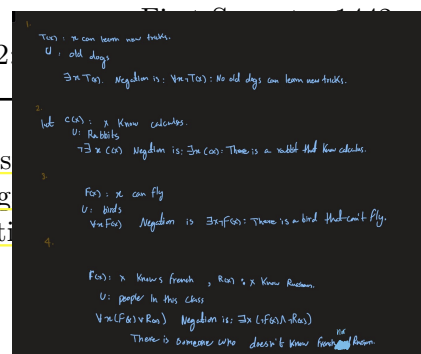 1.
T(x): x can learn new tricks.
U: old dogs
∃x T(x). Negation is: ∀x¬T(x): No old dogs can learn new tricks.
2.
let C(x): x Know calculus.
U: Rabbits
¬∃x C(x) Negation is: ∃x C(x): There is a rabbit that know calculus.
3.
F(x): x can fly
U: birds
∀x F(x) Negation is ∃x¬F(x): There is a bird that can't fly.
4.
F(x): x knows french, R(x): x Know Russian.
U: people in this class
∀x(F(x)∨R(x)) Negation is: ∃x(¬F(x)∧¬R(x))
There is someone who doesn't know french nor Russian.